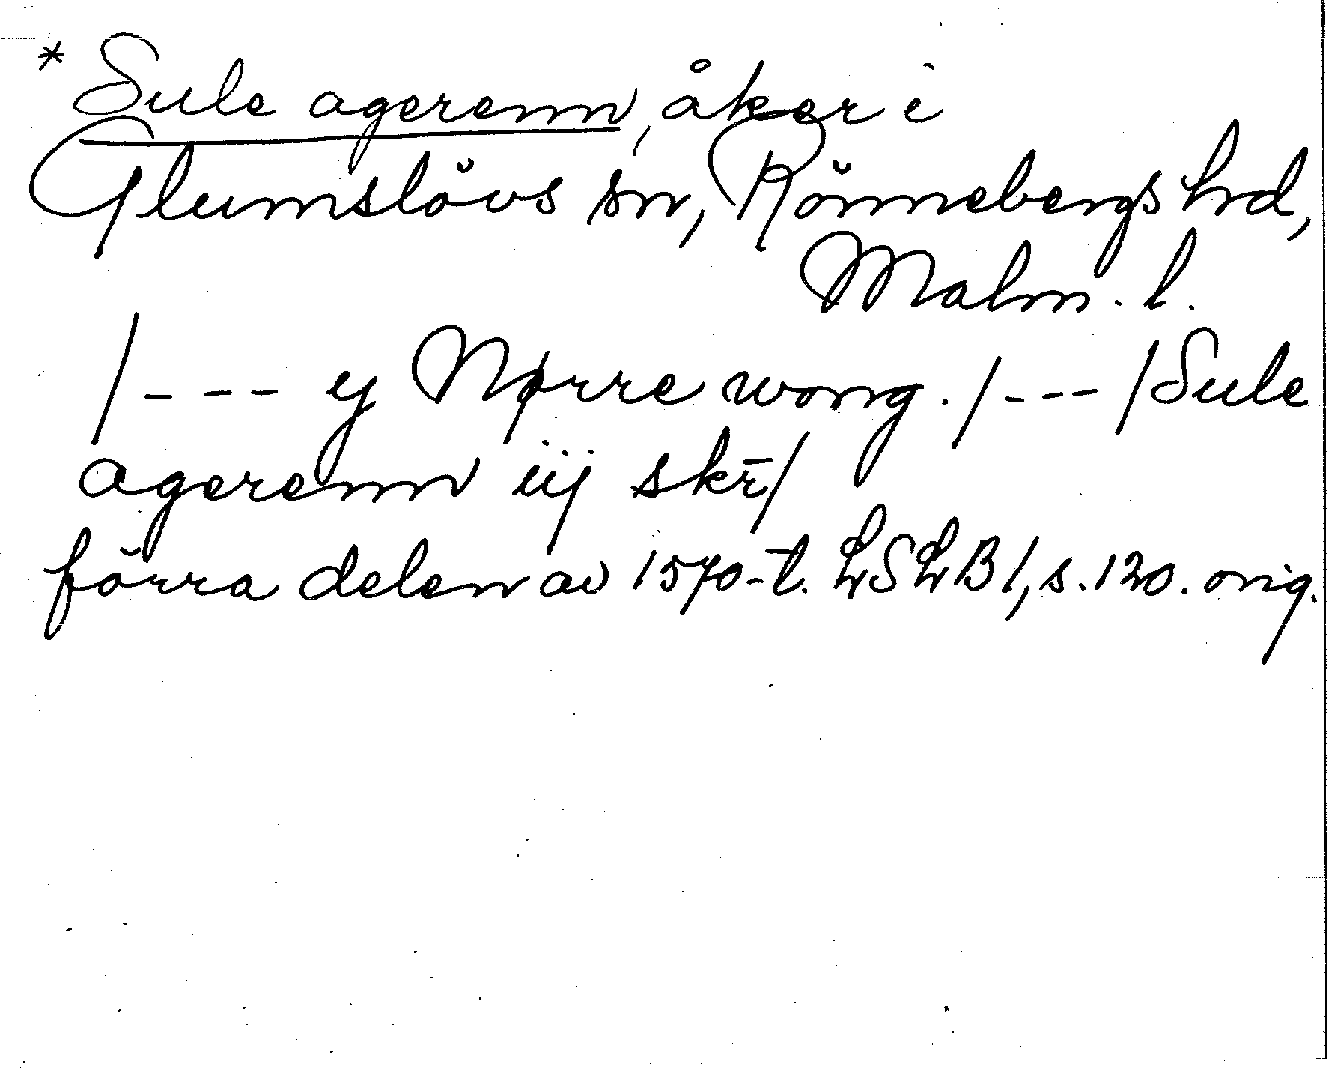 * Sule agerenn, åker i
Glumslövs sn, Rönnebergs hrd,
Malm. l.
/--- y Nørre wong. /---/ Sule
agerenn iij skr̄/
förra delen av 1570-t. LSLB 1, s. 120. orig.